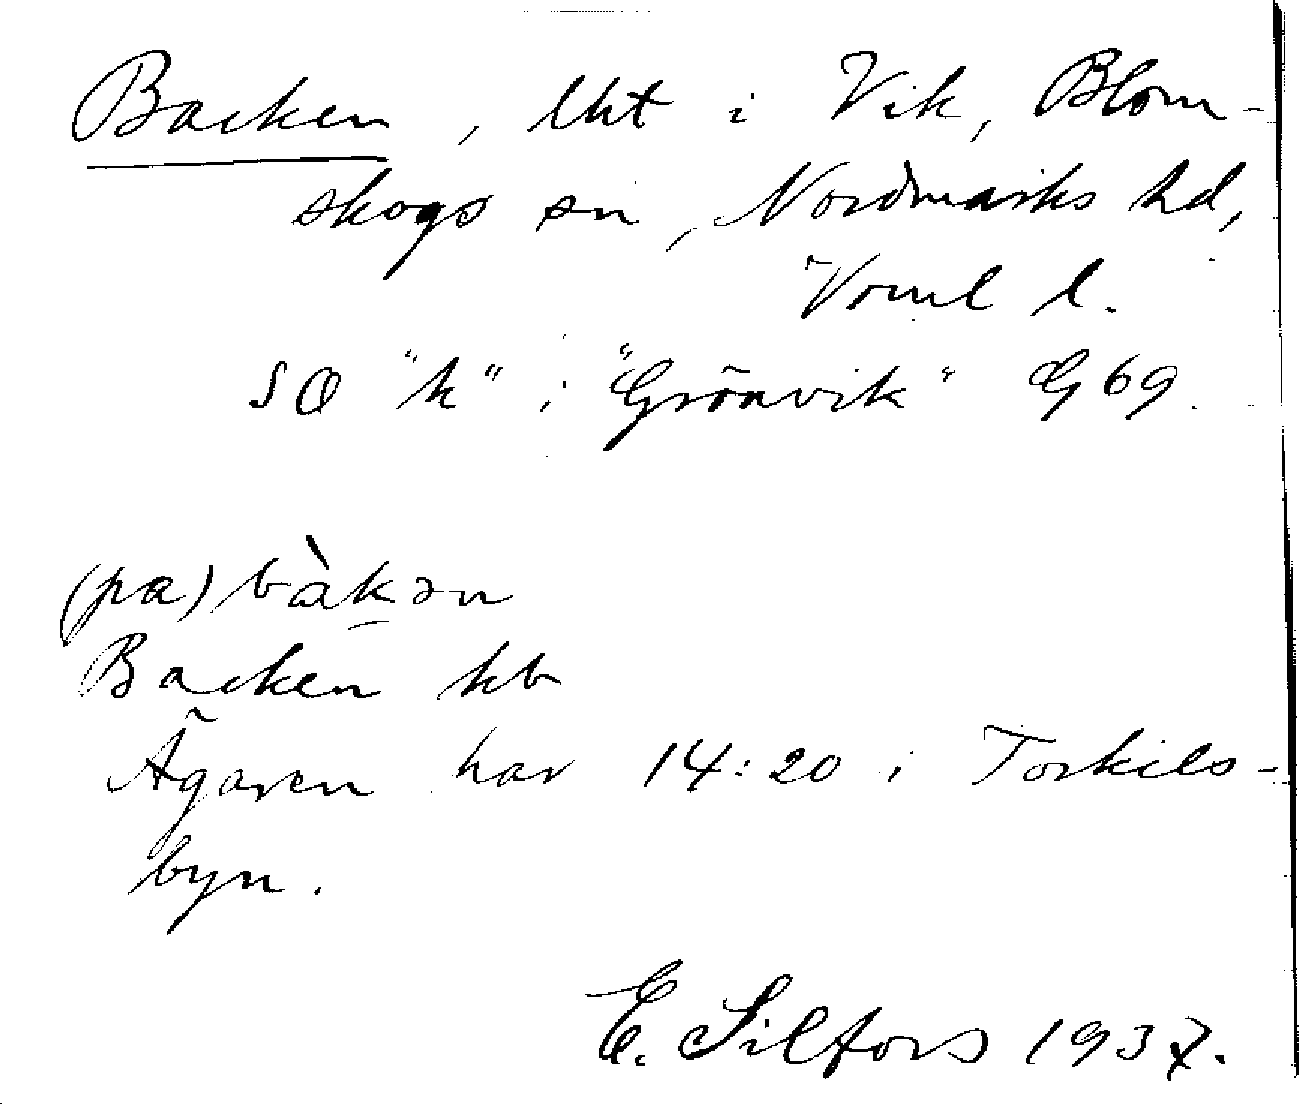 Backen, lht i Vik, Blom-
skogs sn, Nordmarks hd,
Vrml l.
SO "k" i "Grönvik" G 69.
(pa) bàkən
Backen kb
Ägaren har 14:20 i Torkils-
byn.
E. Silfors 1937.